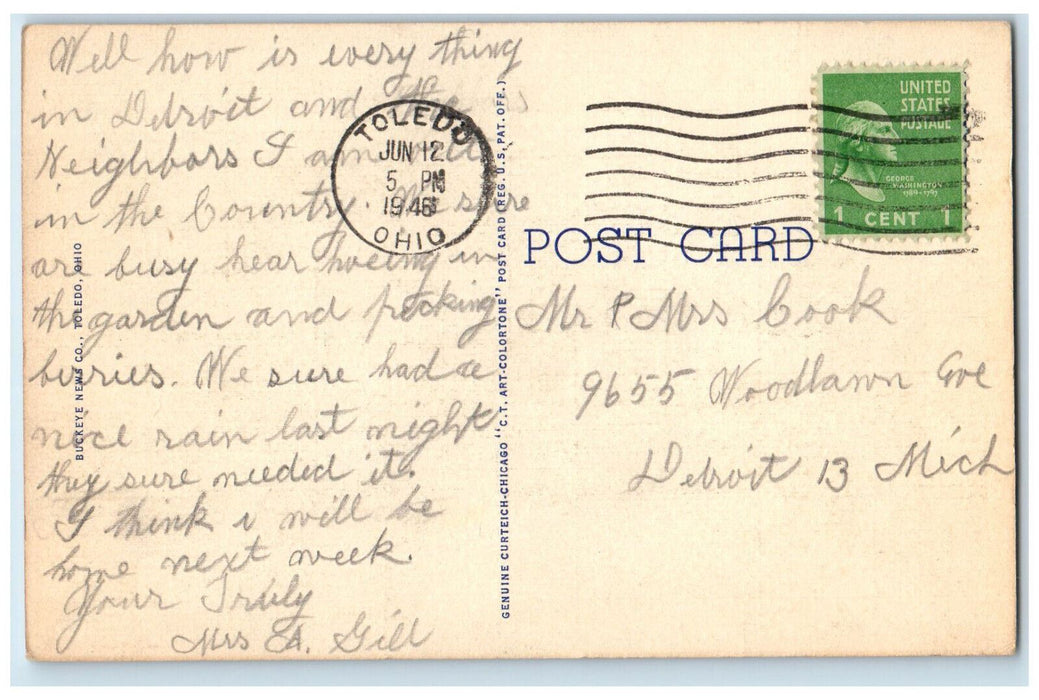 Well how is every thing
in Detroit and the
Neighbors I am still
in the Country. We sure
are busy hear hoeing in
the garden and picking
berries. We sure had a
nice rain last night
they sure needed it.
I think i will be
home next week.
Your Truly
Mrs Gill
BUCKEYE NEWS CO., TOLEDO, OHIO
TOLEDO
JUN 12
5 PM
1946
OHIO
GENUINE CURTEICH-CHICAGO "C.T. ART-COLORTONE" POST CARD (REG. U.S. PAT. OFF.)
UNITED
STATES
POSTAGE
GEORGE
WASHINGTON
1789-1797
1 CENT 1
POST CARD
Mr & Mrs Cook
9655 Woodlawn Ave
Detroit 13 Mich